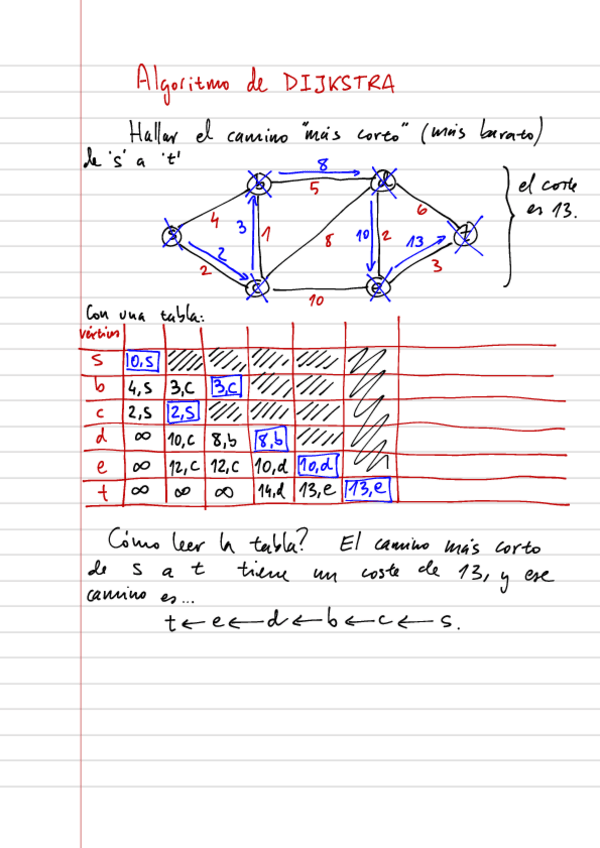 Algoritmo de DIJKSTRA
Hallar el camino "más corto" (más barato)
de 's' a 't'
8
b 5 d
el coste
es 13.
4 3 1 8 10 2 6
s 2 13 t
2 3
c 10 e
Con una tabla:
vértices
s 0,s
b 4,s 3,c 3,c
c 2,s 2,s
d ∞ 10,c 8,b 8,b
e ∞ 12,c 12,c 10,d 10,d
t ∞ ∞ ∞ 14,d 13,e 13,e
Cómo leer la tabla? El camino más corto
de s a t tiene un coste de 13, y ese
camino es...
t ← e ← d ← b ← c ← s.